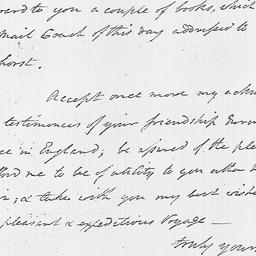 to you a couple of books, which
Mail Coach of this day addressed to
horst.
Accept once more my
testimonies of your friendship
ce in England; be assured of the
me to be of utility to you
take with you my best wishes
pleasant & expeditious Voyage —
truly yours